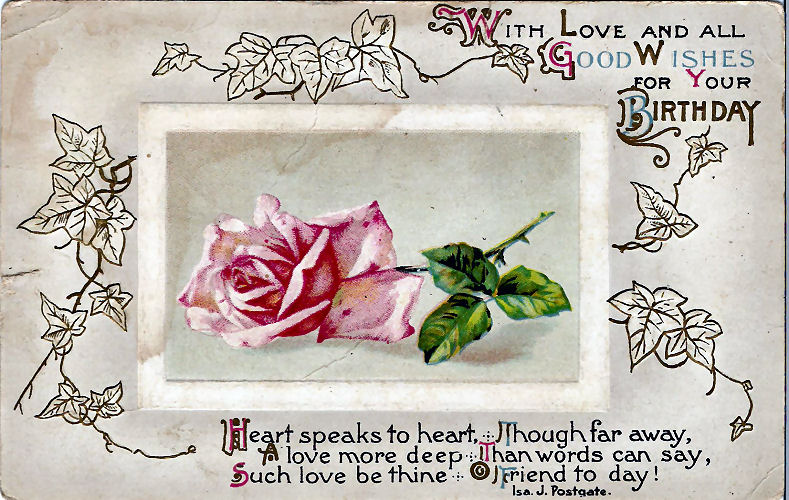 With Love and all
Good Wishes
for Your
Birthday
Heart speaks to heart, Though far away,
A love more deep Than words can say,
Such love be thine O Friend to day!
Isa. J. Postgate.